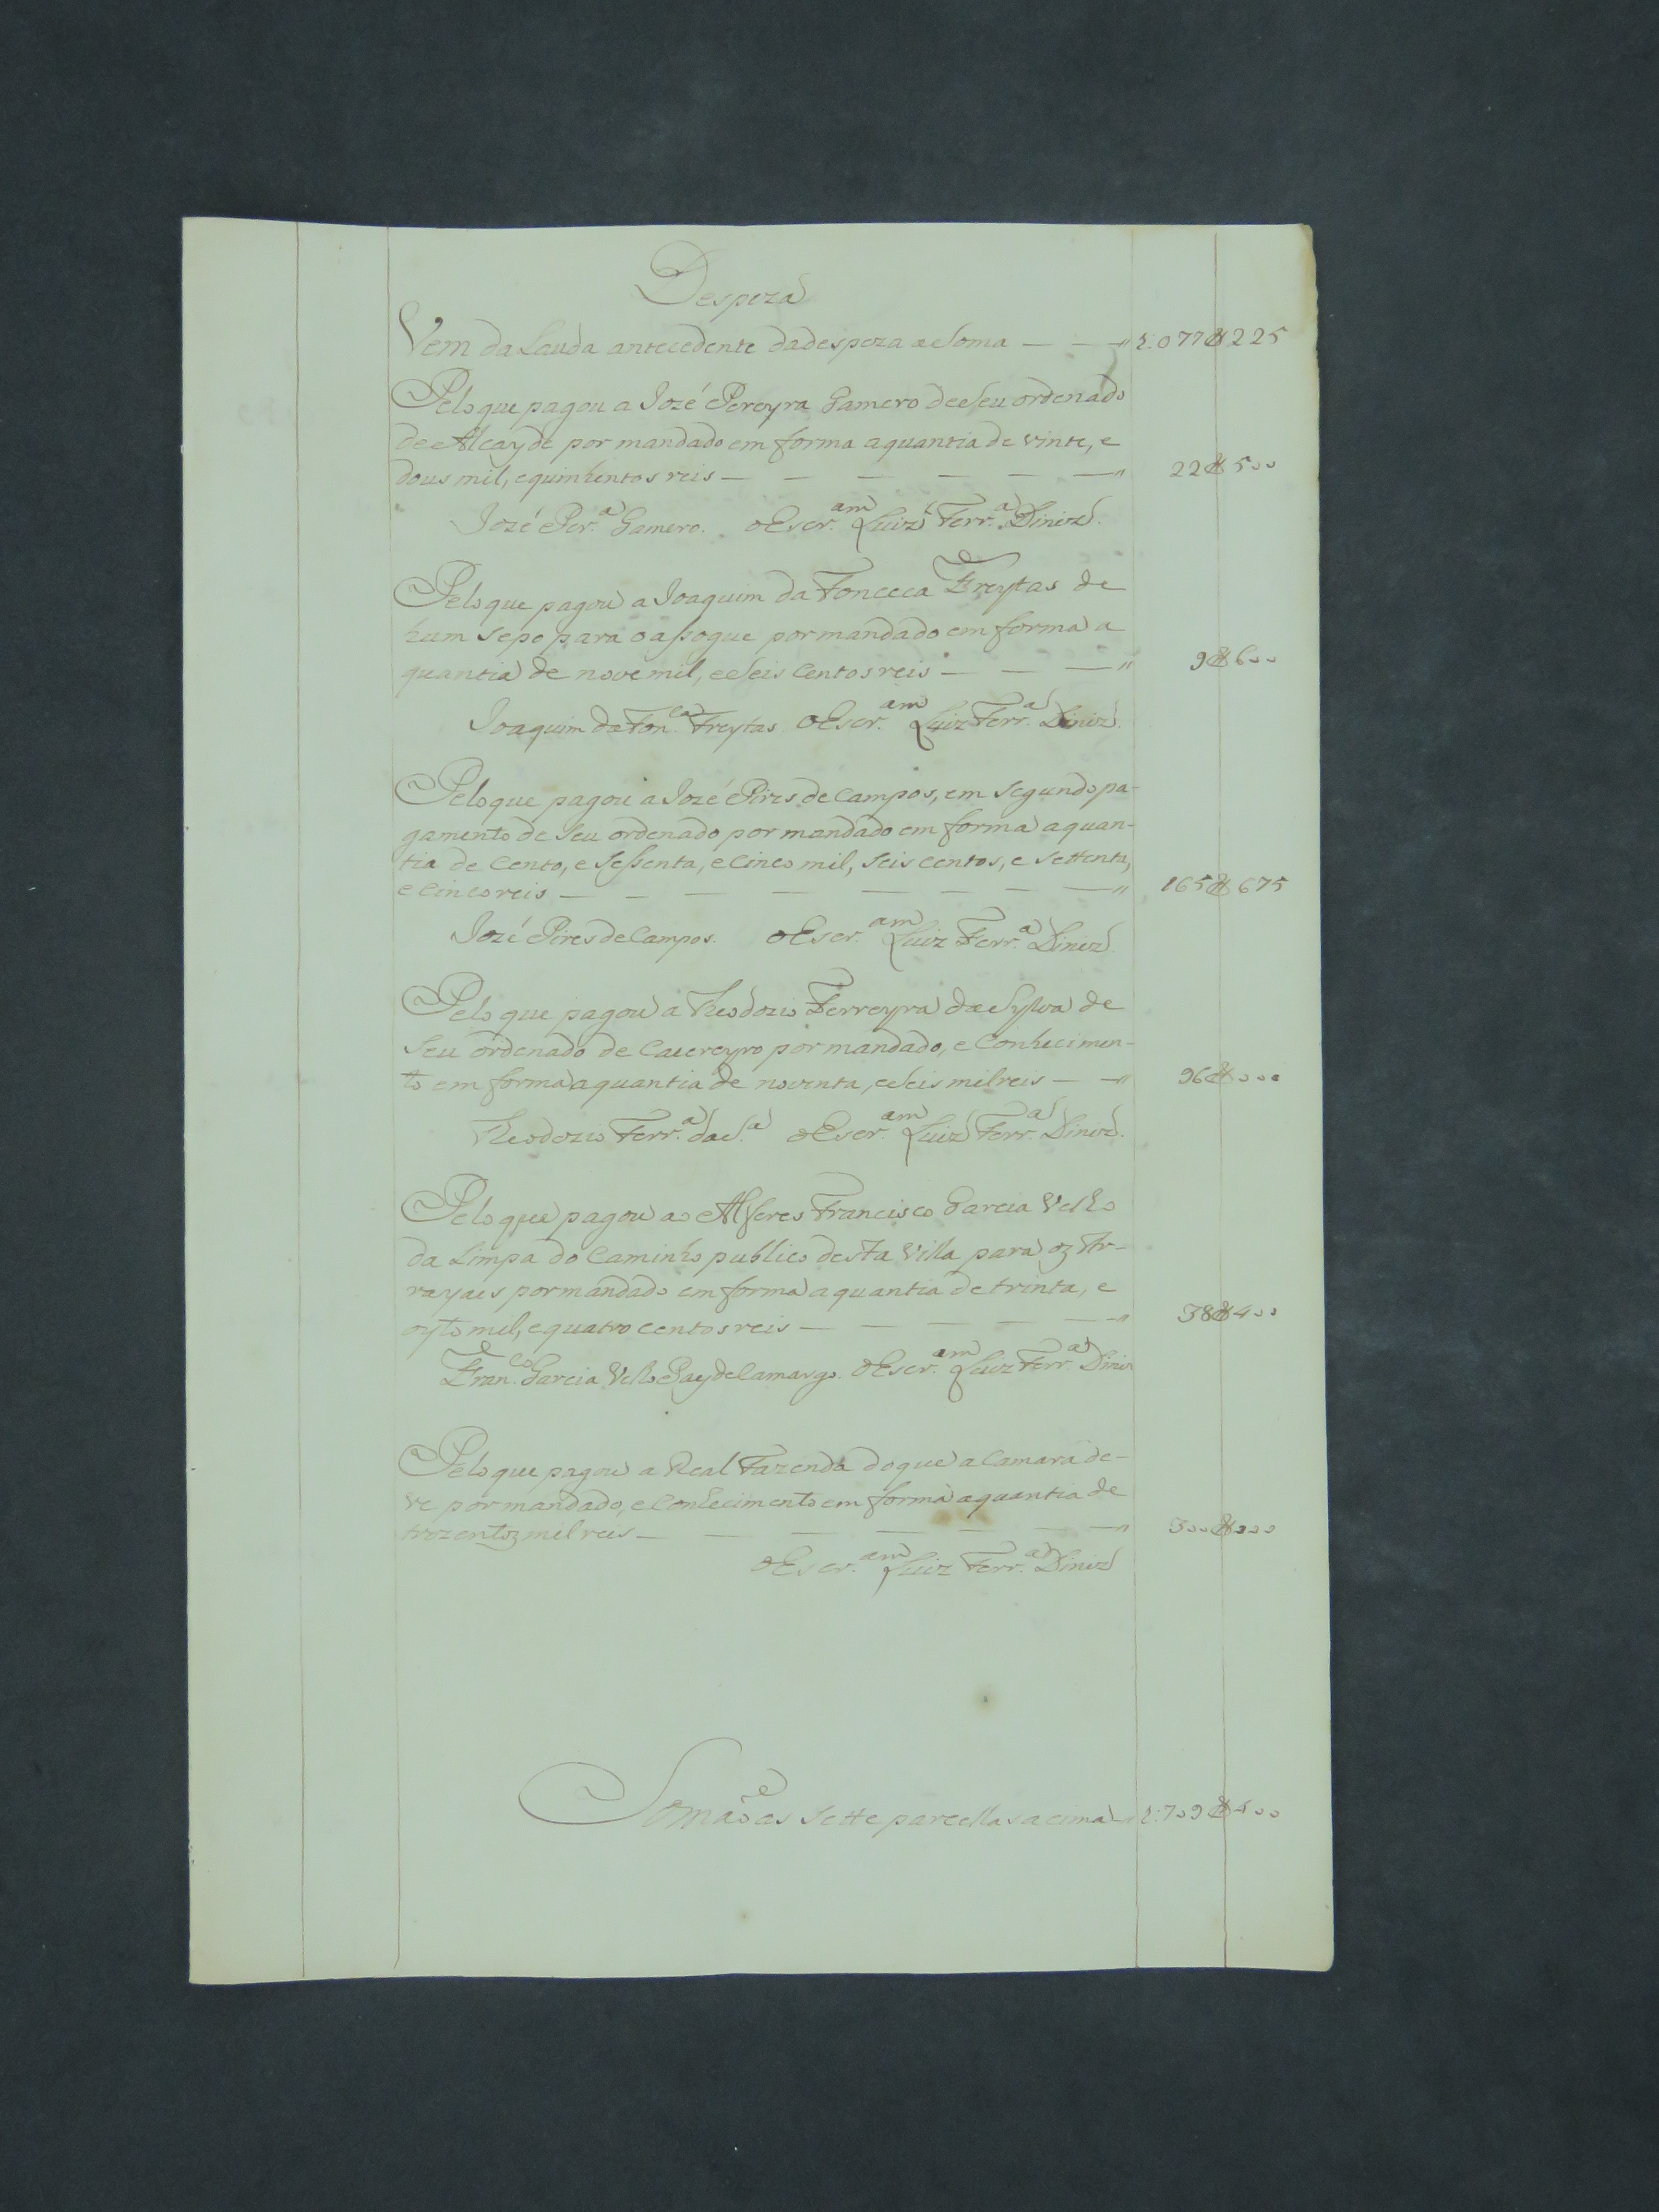 Despeza
Vem da Lauda antecedente dadespeza a Soma — — " 1:077$225
Pelo que pagou a Jozé Pereyra Gamero deSeu ordenado
de Alcayde por mandado em forma aquantia de vinte, e
dous mil, equinhentos reis — — — — — — " 22$500
Jozé Per.ª Gamero. oEscr.am Luiz Ferr.ª Diniz.
Pelo que pagou a Joaquim da Fonceca Freytas de
hum sepo para o asogue por mandado em forma a
quantia de nove mil, eSeis Centos reis — — — " 9$600
Joaquim da Fon.ca Freytas. OEscr.am Luiz Ferr.ª Diniz.
Pelo que pagou a Jozé Pires de Campos, em Segundo pa-
gamento de Seu ordenado por mandado em forma aquan-
tia de Cento, e Seßenta, e Cinco mil, Seis centos, e Settenta,
e Cinco reis — — — — — — — — " 165$675
Jozé Pires de Campos. oEscr.am Luiz Ferr.ª Diniz.
Pelo que pagou a Theodozio Ferreyra da Sylva de
Seu ordenado de Carcreyro por mandado, e Conhecimen-
to em forma aquantia de noventa, eSeis mil reis — — " 96$000
Theodozio Ferr.ª da S.ª oEscr.am Luiz Ferr.ª Diniz.
Pelo que pagou ao Alferes Francisco Garcia Velho
da Limpa do Caminho publico desta Villa para os Ar-
rayaes por mandado em forma aquantia de trinta, e
oyto mil, e quatro centos reis — — — — — " 38$400
Fran.co Garcia Velho Paes de Camargo. OEscr.am Luiz Ferr.ª Diniz
Pelo que pagou a Real Fazenda do que a Camara de-
ve por mandado, e Conhecimento em forma aquantia de
trezentos mil reis — — — — — — — " 300$000
OEscr.am Luiz Ferr.ª Diniz
Somaõ as Sette parcellas acima " 1:709$400